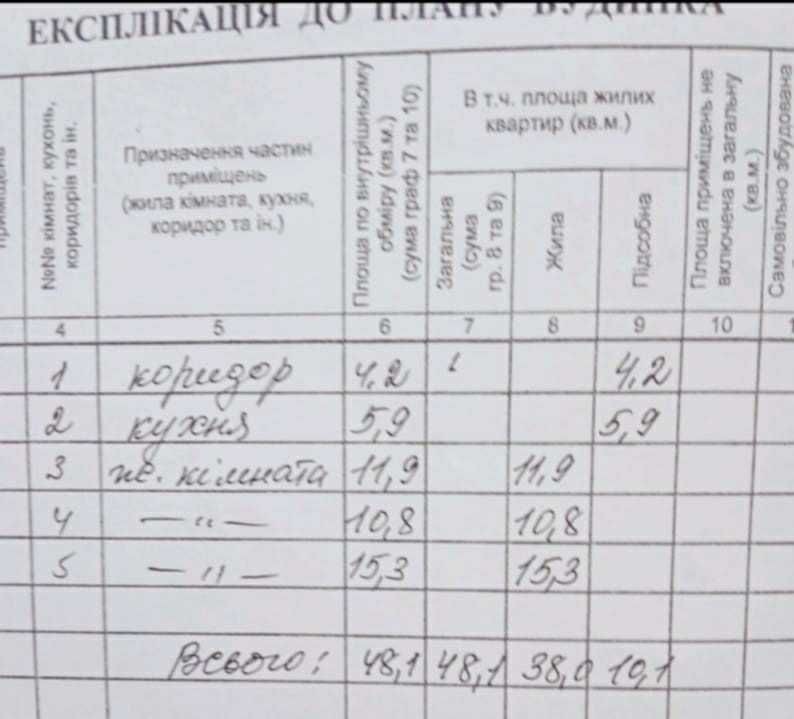 ЕКСПЛІКАЦІЯ ДО ПЛАНУ БУДИНКА
№№ кімнат, кухонь,
коридорів та ін.
Призначення частин
приміщень
(жила кімната, кухня,
коридор та ін.)
Площа по внутрішньому
обміру (кв.м.)
(сума граф 7 та 10)
В т.ч. площа жилих
квартир (кв.м.)
Загальна
(сума
гр. 8 та 9)
Жила
Підсобна
Площа приміщень не
включена в загальну
(кв.м.)
Самовільно збудована
4 5 6 7 8 9 10 1
1 коридор 4.2 4.2
2 кухня 5,9 5,9
3 жв. кімната 11,9 11,9
4 — „ — 10,8 10,8
5 — „ — 15,3 15,3
Всього: 48,1 48,1 38,0 10,1